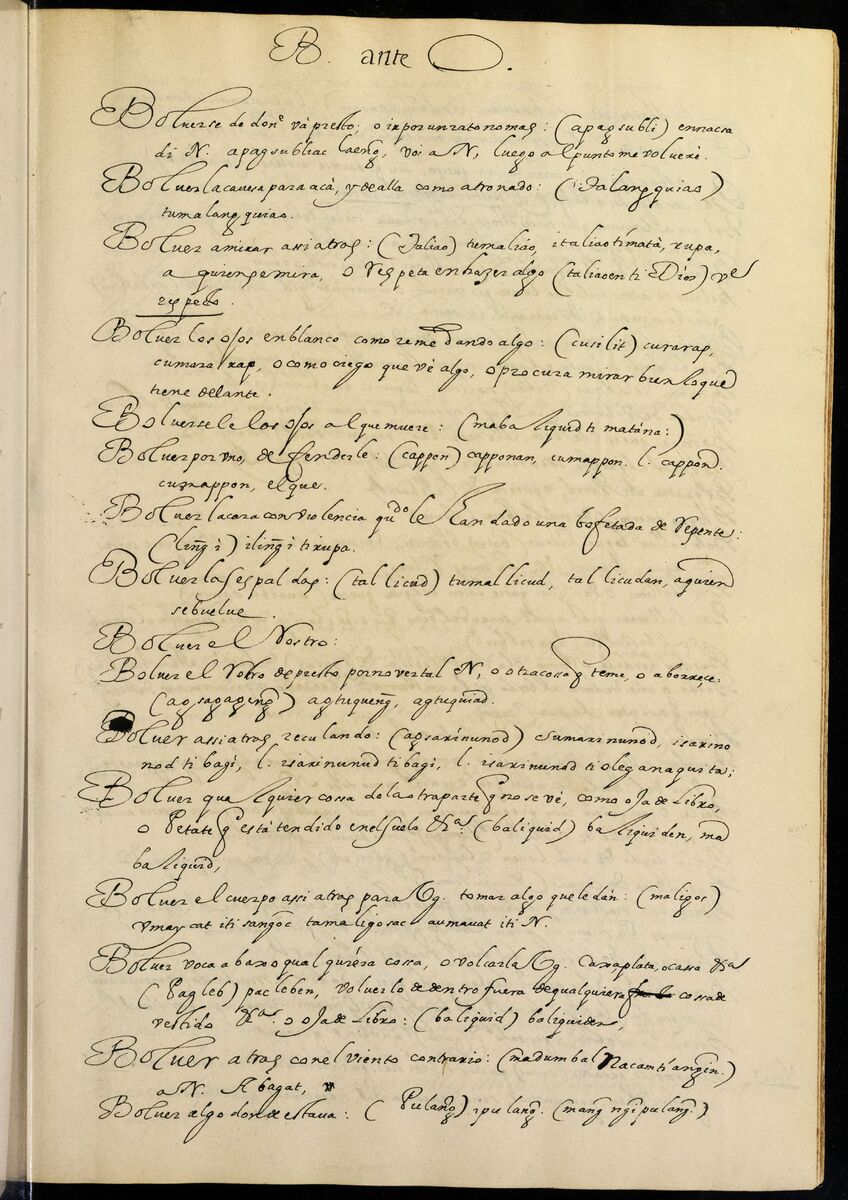 B. ante O.
Boluerse de donde va presto; o ir por un rato nomas: (apagsubli) ennacsa
di N. apagsubliac laeng, voi a N, luego al punto me volvere.
Boluer la cauesa para acà, y de alla como atronado: (Talangquias)
tumalangquias.
Boluer a mirar assi atras: (Taliao) tumaliáo, italiaotimatà, rupa,
a quien se mira, o Respeta en hazer algo (taliaoenti Dios) vel
respecto.
Boluer los ojos en blanco como remedando algo: (cusilit) curarap,
cumararap, o como ciego que vè algo, o procura mirar bien lo que
tiene delante.
Boluersele los ojos al que muere: (mabaliquid ti matána:)
Boluer por vno, defenderle: (cappon) capponan, cumappon. l. cappond.
cumappon, el que.
Boluer la cara con violencia qdo le han dado una bofetada de Repente:
(lingi) ilingi ti rupa.
Boluer las espaldas: (tallicud) tumallicud, tallicudan, a quien
se buelue.
Boluer el Rostro:
Boluer el Rostro de presto por no ver tal N, o otra cossa q teme, o aborreçe:
(agsagageng) agtuqueng, agtuquiad.
Boluer assi atras reculando: (agsarinunod) sumarinunod, isarinu
nod ti bagi, l. isarinunud ti bagi, l. isarinunod ti oleg anaquita;
Boluer qualquier cossa de la otra parte q no se vè, como oja de Libro,
o Petate q està tendido en el suelo &a. (baliquid) baliquiden, ma
baliquid,
Boluer el cuerpo assi atras para Vg. tomar algo que le dàn: (maligos)
vmaycat iti sangoc tamàligosac aumauat iti N.
Boluer voca abaxo qualquiera cossa, o volcarla Vg. Taxa plata, o cassa &a
(Pagleb) pacleben, voluerlo de dentro fuera de qualquiera cossa de
vestido &a. o oja de Libro: (baliquid) baliquiden,
Boluer atras con el viento contrario: (madumbal Nacamti angin.)
a N. Abagat,
Boluer algo donde estaua: (Pulang) ipulang. (mangngipulang.)